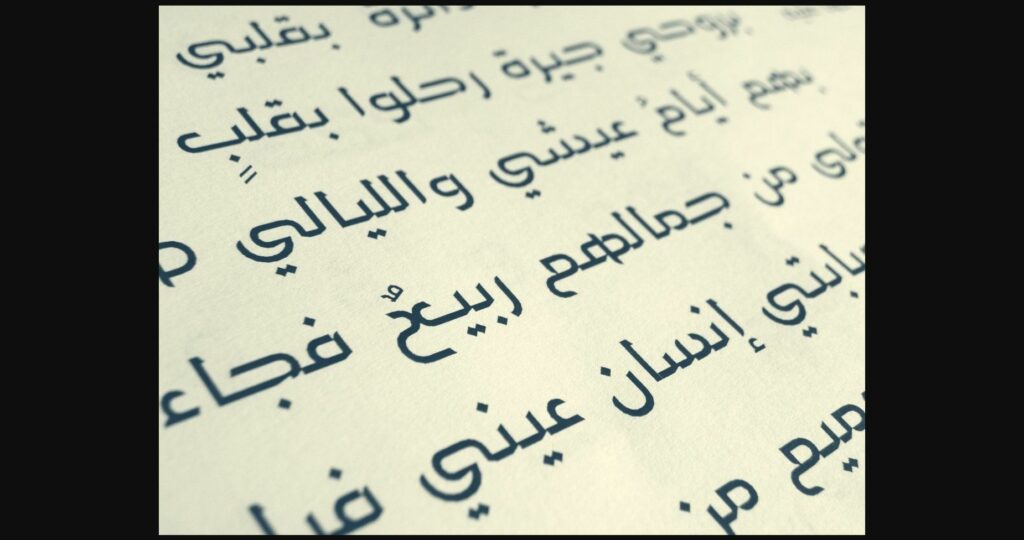 بقلبي
بروحي جيرة رحلوا بقلبٍ
بهم أيامُ عيشي والليالي
من جمالهم ربيعٌ فجاء
إنسان عيني
من